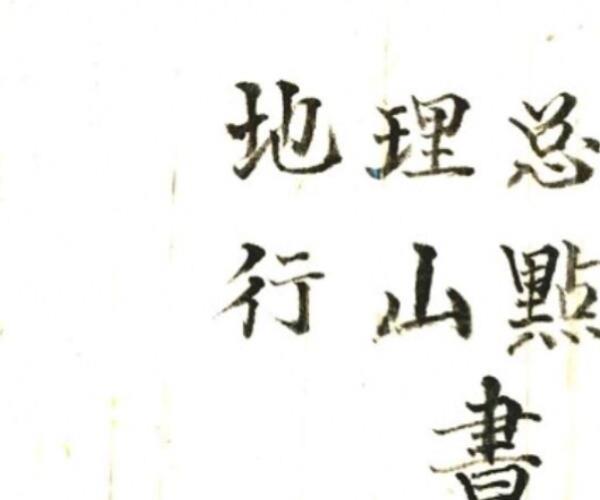 地理总
行山點
書